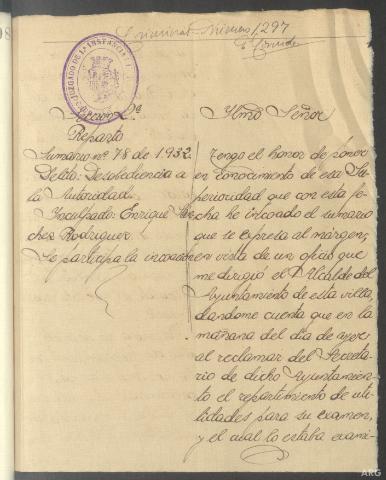 297
Sección 2ª
Reparto
Sumario nº 78 de 1.932.
Delito: Desobediencia a
la Autoridad.
Inculpado: Enrique Sán-
chez Rodriguez.
Se participa la incoación
Ilmo Señor
Tengo el honor de poner
en conocimiento de esa Su-
perioridad que con esta fe-
cha he incoado el sumario
que se expresa al márgen,
en vista de un oficio que
me dirigió el Sr. Alcalde del
Ayuntamiento de esta villa,
dandome cuenta que en la
mañana del día de ayer
al reclamar del Secreta-
rio de dicho Ayuntamien-
to el repartimiento de uti-
lidades para su examen,
y el cual lo estaba exami-
JUZGADO DE 1ª INSTANCIA
ARG